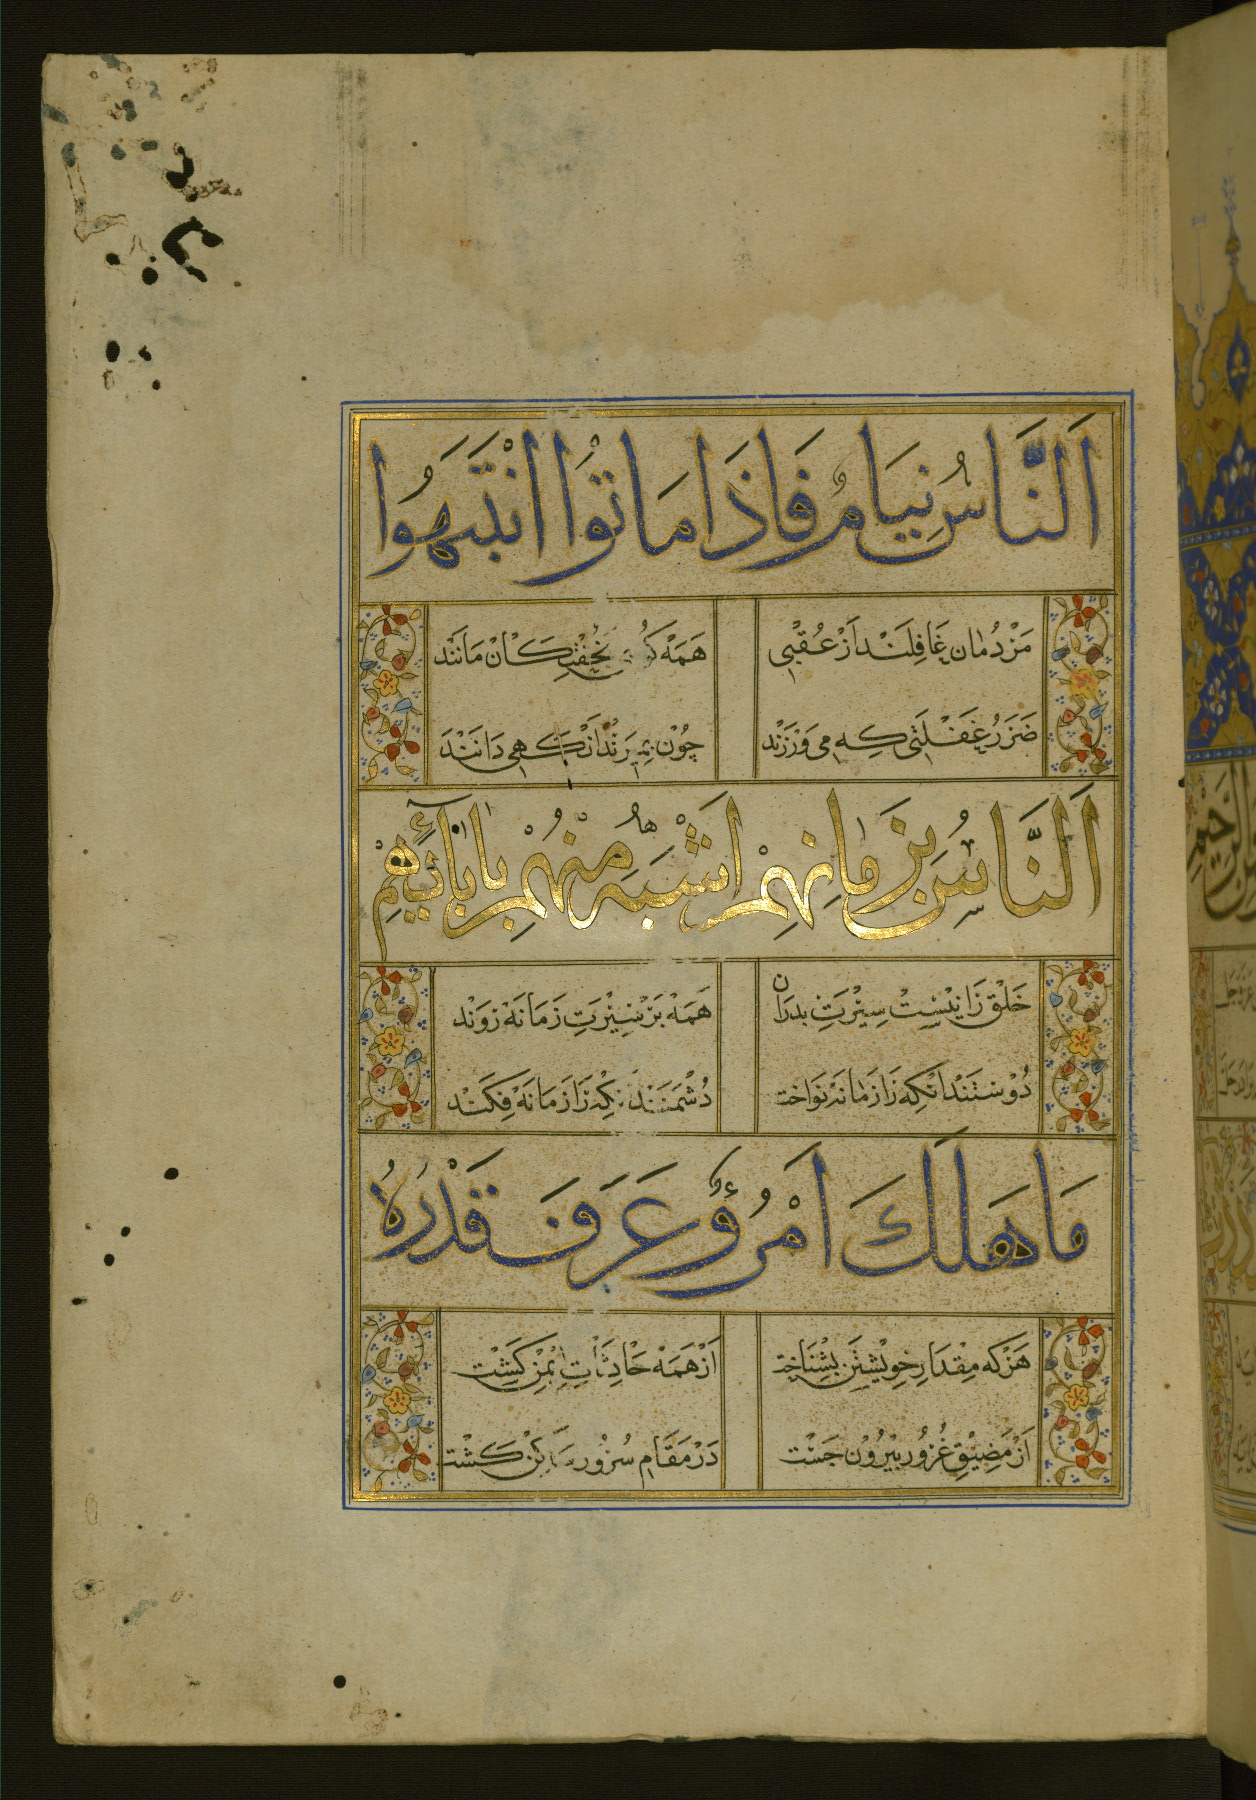 اَلنَّاسُ نِيَامٌ فَاِذَا مَاتُوا انْتَبَهُوا
مَرْدُمان غَافِلَنْد اَزْ عُقْبٰى هَمَه خُفْتِکَانْ مَانَنْد
ضَرَرُ غَفْلَتِى کِه مِى وَرْزَنْد چُوْن بِمِيرَنْد اَنْکَهِى دَانَنْد
اَلنَّاسُ بِزَمَانِهِمْ اَشْبَهُ مِنْهُمْ بِاٰبَائِهِمْ
خَلْق رَا نِيْسِتْ سِيْرَتِ بدَرَان هَمَهْ بَرْ سِيْرَتِ زَمَانَه رَوَنْد
دُوْسْتَنْد اَنْکِه رَا زَمَانَه نَوَاخْت دُشْمَنَنْد کِه رَا زَمَانَه فِکَنْد
مَا هَلَكَ امْرُؤٌ عَرَفَ قَدْرَهُ
هَرْ کِه مِقْدَارِ خِويْشِتَن بِشْنَاخْت اَزْ هَمَهْ حَادِثَاتْ اِيْمِنْ کَشْت
اَزْ مَضِيْقِ غُرُوْر بيْرُوْن جَسْت دَرْ مَقَامِ سُرُوْر کَشْت